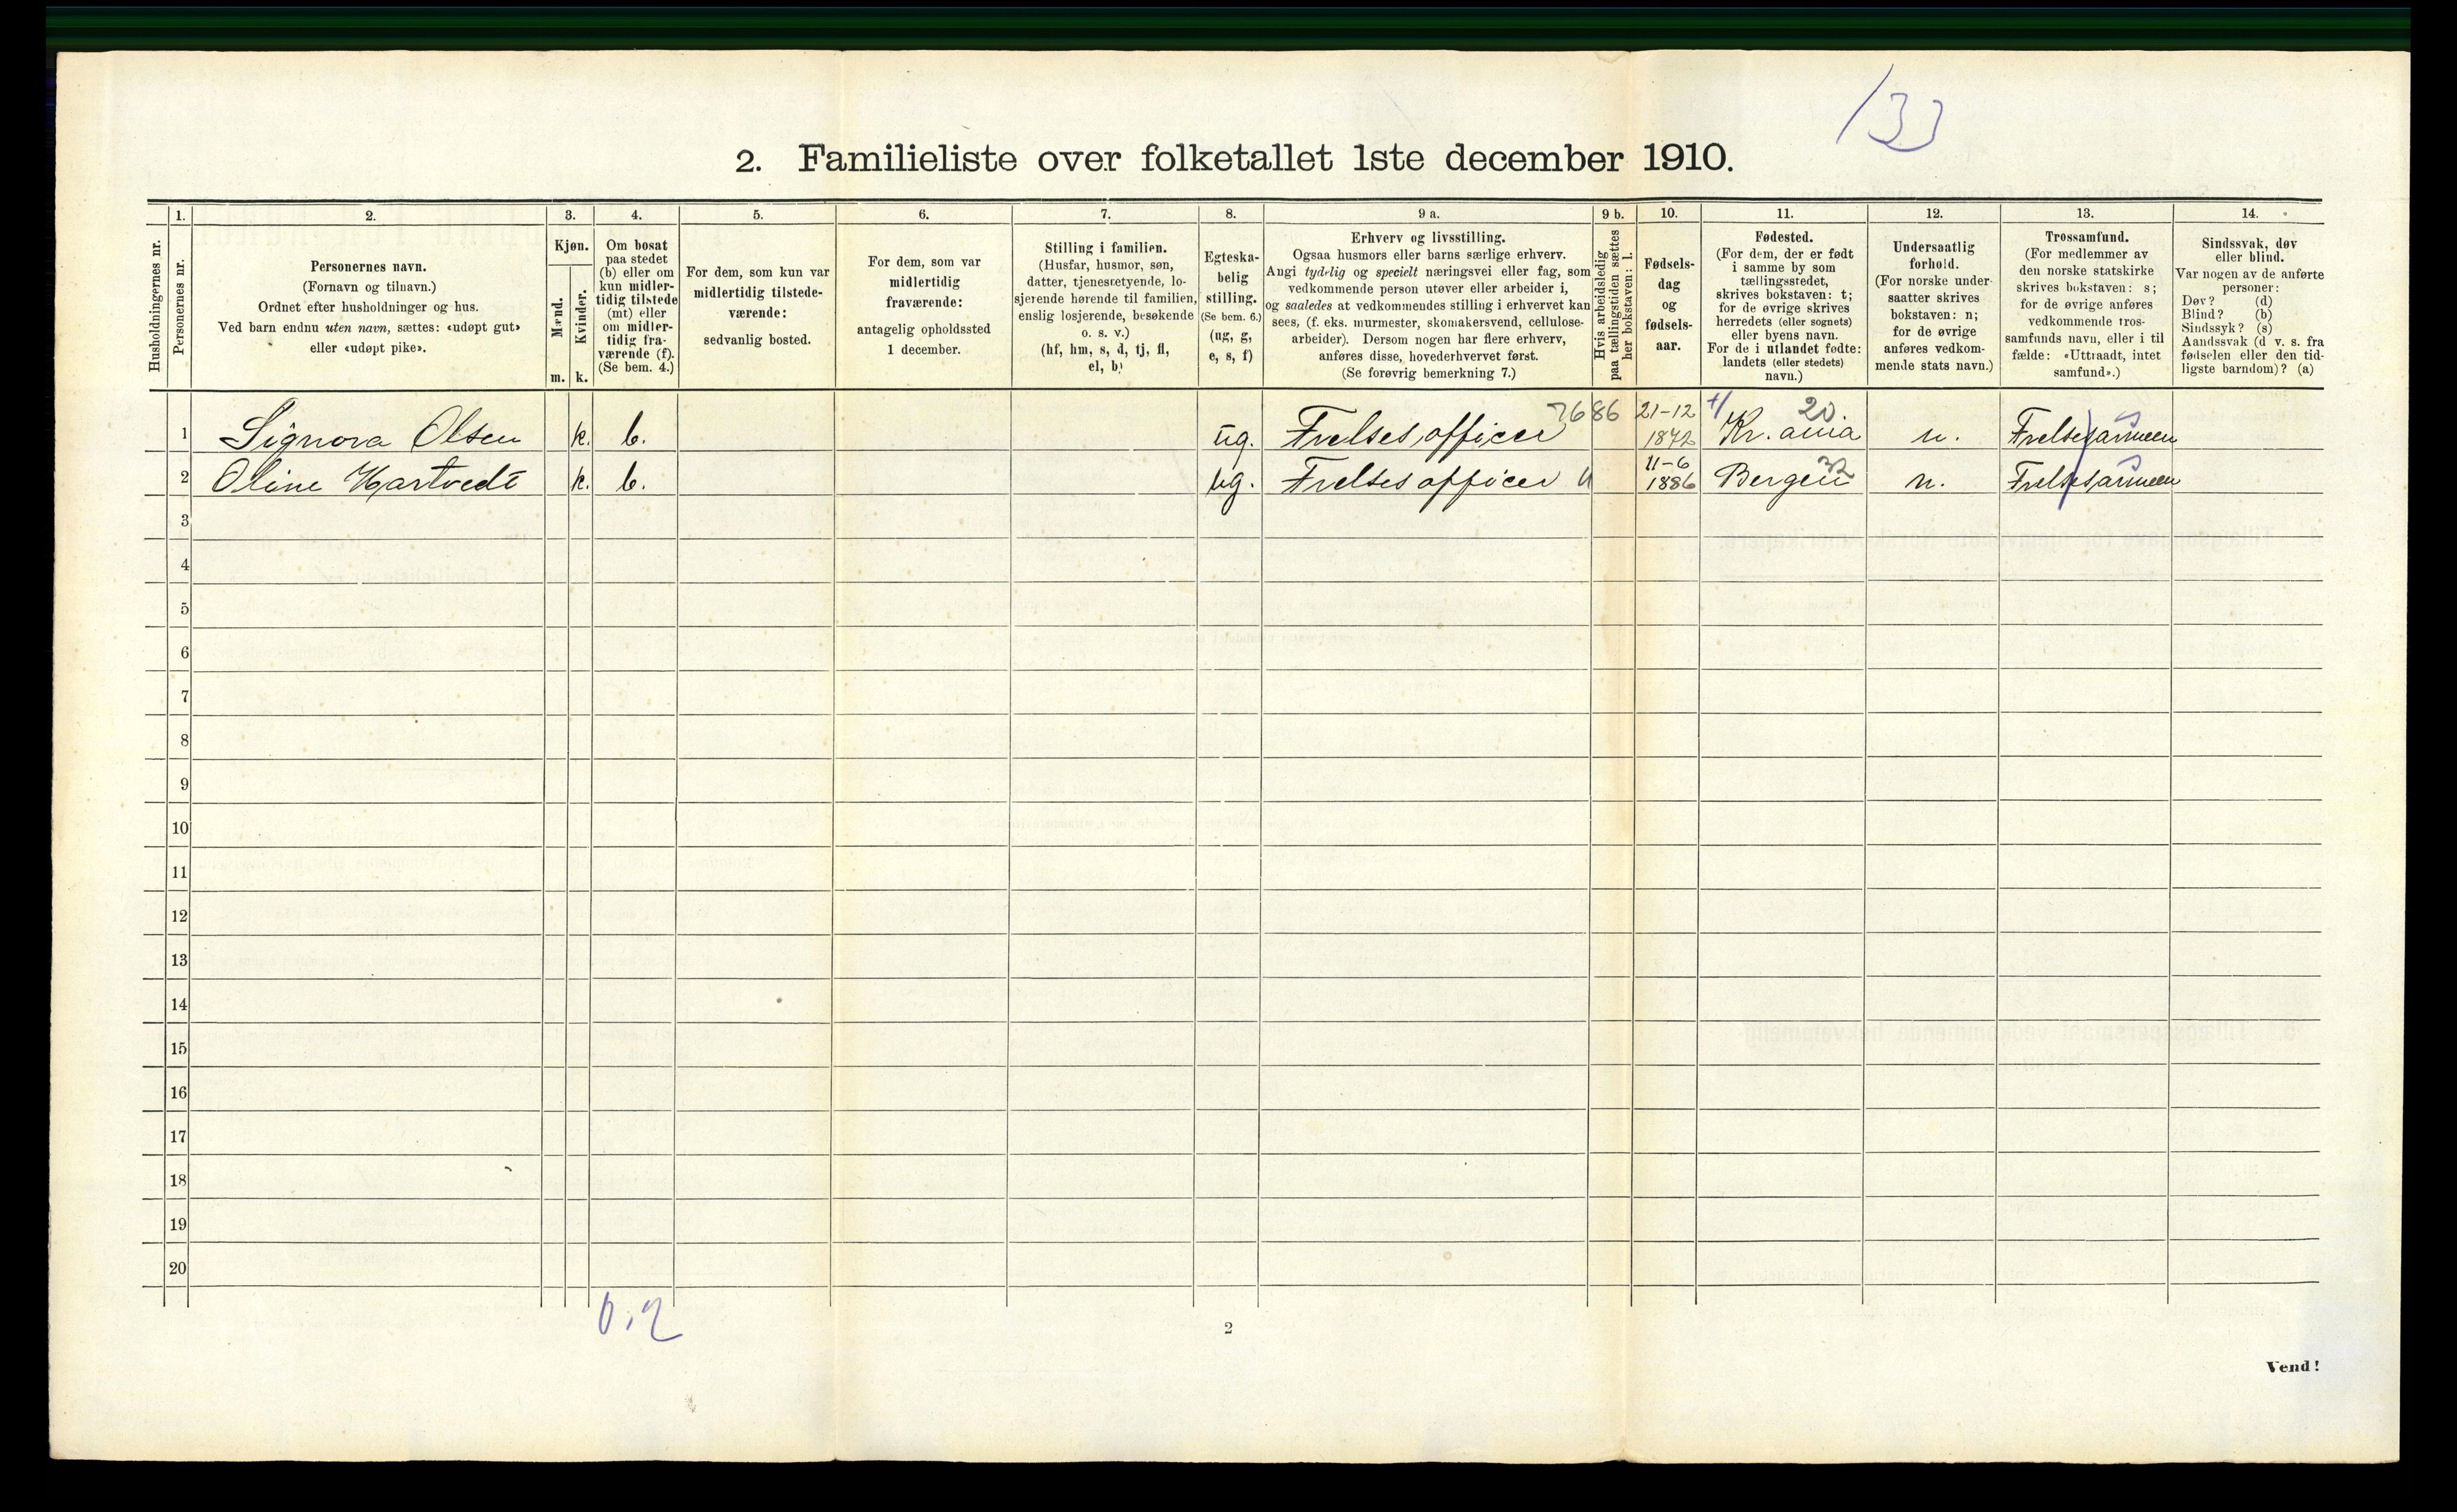 133
2. Familieliste over folketallet 1ste december 1910.
Husholdningernes nr.
1.
Personernes nr.
2.
Personernes navn.
(Fornavn og tilnavn.)
Ordnet efter husholdninger og hus.
Ved barn endnu uten navn, sættes: «udøpt gut»
eller «udøpt pike».
3.
Kjøn.
Mænd.
Kvinder.
m. k.
4.
Om bosat
paa stedet
(b) eller om
kun midler-
tidig tilstede
(mt) eller
om midler-
tidig fra-
værende (f).
(Se bem. 4.)
5.
For dem, som kun var
midlertidig tilstede-
værende:
sedvanlig bosted.
6.
For dem, som var
midlertidig
fraværende:
antagelig opholdssted
1 december.
7.
Stilling i familien.
(Husfar, husmor, søn,
datter, tjenestetyende, lo-
sjerende hørende til familien,
enslig losjerende, besøkende
o. s. v.)
(hf, hm, s, d, tj, fl,
el, b)
8.
Egteska-
belig
stilling.
(Se bem. 6.)
(ug, g,
e, s, f)
9 a.
Erhverv og livsstilling.
Ogsaa husmors eller barns særlige erhverv.
Angi tydelig og specielt næringsvei eller fag, som
vedkommende person utøver eller arbeider i,
og saaledes at vedkommendes stilling i erhvervet kan
sees, (f. eks. murmester, skomakersvend, cellulose-
arbeider). Dersom nogen har flere erhverv,
anføres disse, hovederhvervet først.
(Se forøvrig bemerkning 7.)
9 b.
Hvis arbeidsledig
paa tællingstiden sættes
her bokstaven: l.
10.
Fødsels-
dag
og
fødsels-
aar.
11.
Fødested.
(For dem, der er født
i samme by som
tællingsstedet,
skrives bokstaven: t;
for de øvrige skrives
herredets (eller sognets)
eller byens navn.
For de i utlandet fødte:
landets (eller stedets)
navn.)
12.
Undersaatlig
forhold.
(For norske under-
saatter skrives
bokstaven: n;
for de øvrige
anføres vedkom-
mende stats navn.)
13.
Trossamfund.
(For medlemmer av
den norske statskirke
skrives bokstaven: s;
for de øvrige anføres
vedkommende tros-
samfunds navn, eller i til
fælde: «Uttraadt, intet
samfund».)
14.
Sindssvak, døv
eller blind.
Var nogen av de anførte
personer:
Døv? (d)
Blind? (b)
Sindssyk? (s)
Aandssvak (d v. s. fra
fødselen eller den tid-
ligste barndom)? (a)
1 Signora Olsen k. b. ug. Frelsesofficer 7686 21-12 1872 Kr.ania 20. n. Frelsesarmeen s
2 Oline Hartvedt k. b. ug. Frelsesofficer " 11-6 1886 Bergen 32 n. Frelsesarmeen s
3
4
5
6
7
8
9
10
11
12
13
14
15
16
17
18
19
20
0,2
2
Vend!